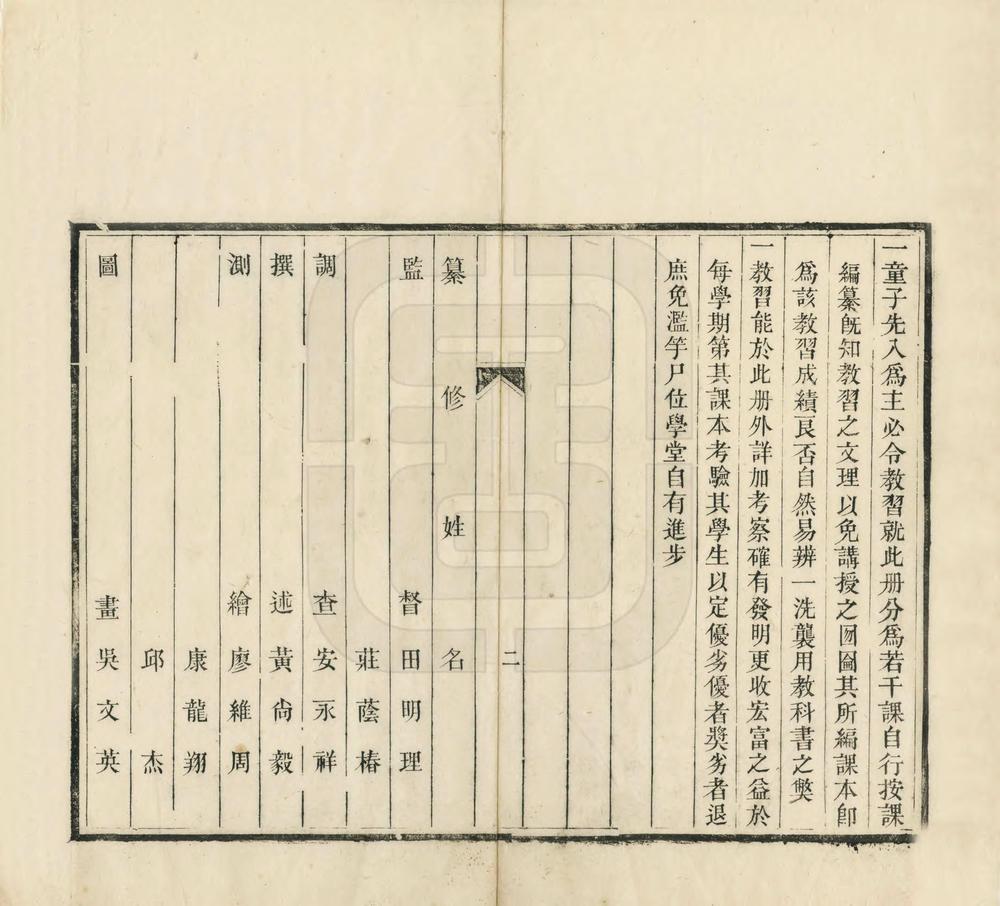 一童子先入爲主必令教習就此册分爲若干課自行按課
編纂旣知教習之文理以免講授之囫圇其所編課本卽
爲該教習成績良否自然易辨一洗襲用教科書之獘
一教習能於此册外詳加考察確有發明更收宏富之益於
每學期第其課本考驗其學生以定優劣優者奬劣者退
庶免濫竽尸位學堂自有進步
二
纂修姓名
監督田明理
莊蔭椿
調查安永祥
撰述黃尙毅
測繪廖維周
康龍翔
邱杰
圖畫吳文英